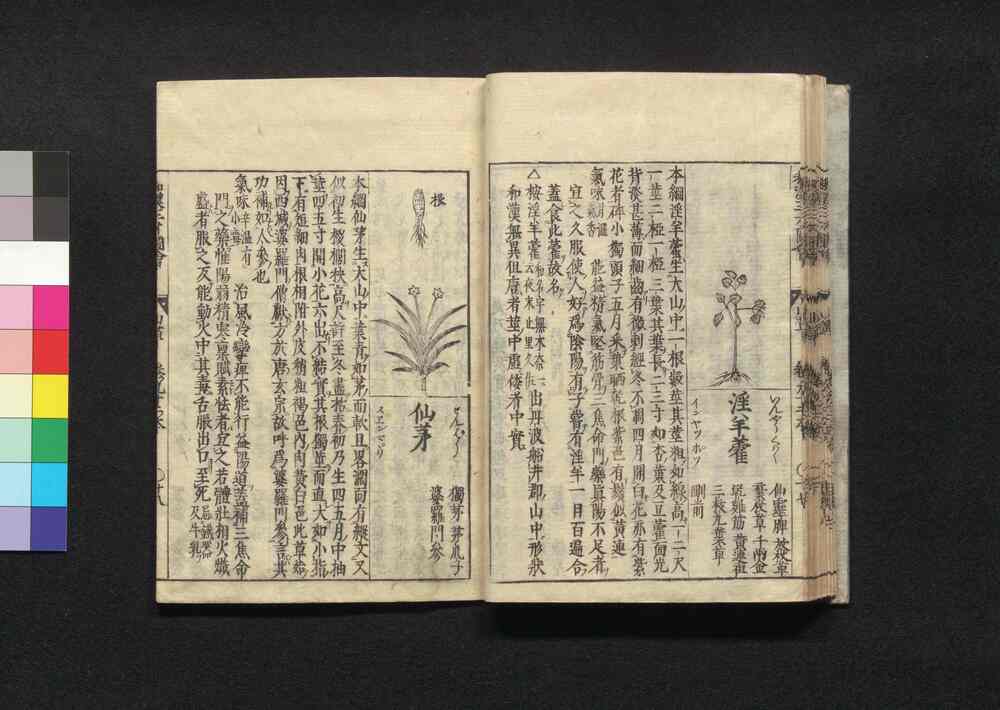 いんやうくわく
淫羊藿
インヤツホツ
仙靈脾 放杖草
棄杖草 千兩金
乾雞筋 黃連祖
三枝九葉草
剛前
本綱淫羊藿生大山中一根數莖其莖粗如線高一二尺
一莖三椏一椏三葉其葉長二三寸如杏葉及豆藿面光
背淡甚薄而細齒有微刺經冬不凋四月開白花亦有紫
花者碎小獨頭子五月采葉晒乾根紫色有鬚似黃連
氣味 能益精氣堅筋骨三焦命門藥眞陽不足者
宜之久服使人好爲陰陽有子嘗有淫羊一日百遍合
蓋食此藿故名
△按淫羊藿 出丹波船井郡山中形狀
和漢無異但唐者莖中虛倭者中實
根
せんばう
仙茅
スエンマ゜ウ
獨茅 茅爪子
婆羅門參
本綱仙茅生大山中葉青如茅而軟且畧濶面有縱文又
似初生椶櫚秧高尺許至冬盡枯春初乃生四五月中抽
莖四五寸開小花六出不結實其根獨莖而直大如小指
下有短細肉根相附外皮稍粗褐色內肉黃白色此草始
因西域婆羅門僧獻方於唐玄宗故呼爲婆羅門參言其
功補如人參也
氣味 辛溫有小毒 治風冷攣痺不能行益陽道蓋補三焦命
門之藥惟陽弱精寒禀賦素怯者宜之若體壯相火熾
盛者服之反能動火中其毒舌脹出口至死 忌鐵器及牛乳